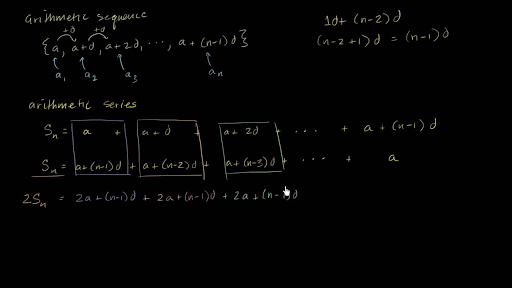 arithmetic sequence
+d +d
{a, a+d, a+2d, ..., a+(n-1)d}
a₁ a₂ a₃ aₙ
1d+(n-2)d
(n-2+1)d = (n-1)d
arithmetic series
Sₙ = a + a+d + a+2d + ... + a+(n-1)d
Sₙ = a+(n-1)d + a+(n-2)d + a+(n-3)d + ... + a
2Sₙ = 2a+(n-1)d + 2a+(n-1)d + 2a+(n-1)d